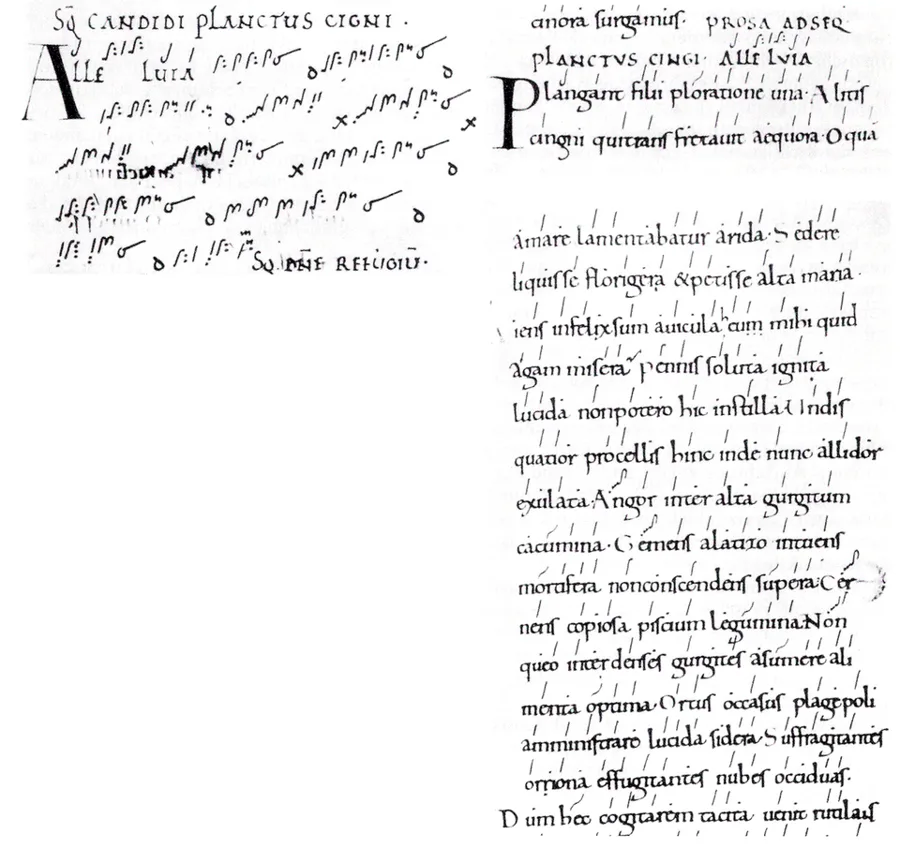 Sq CANDIDI PLANCTUS CIGNI .
ALLE LUIA
Sq. PNE REFUGIU.
cinora surgamus. PROSA AD SEQ
PLANCTVS CINGI. ALLELVIA
Plangant filii ploratione una. Alitis
cingni qui trans fretauit aequora. O qua
amare lamentabatur arida. Se dere
liquisse florigera & petisse alta maria.
iens infelix sum auicula cum mihi quid
agam misera pennis soluta ignita
lucida non potero hic instilla Undis
quatior procellis hinc inde nunc allidor
exulata. Angor inter alta gurgitum
cacumina. Gemens alatizo intuens
mortifera non conscendens supera. Cer
nens copiosa piscium legumina Non
queo inter denses gurgites asumere ali
menta optima. Ortus occasus plage poli
amministrare lucida sidera. Suffragitantes
oriona effugitantes nubes occiduas.
Dum hec cogitarem tacita uenit rutilais